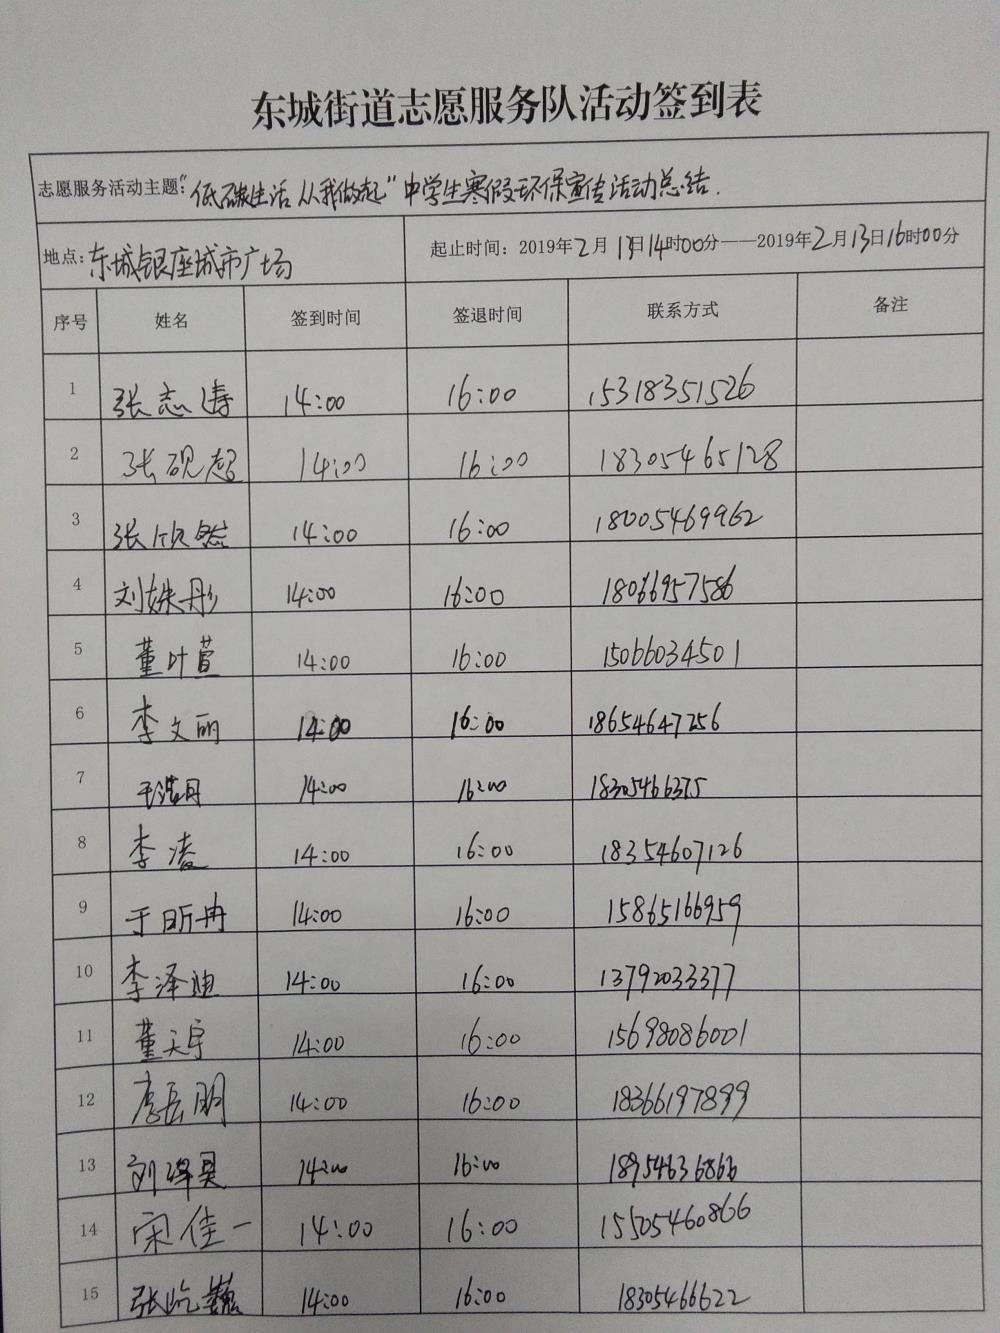 东城街道志愿服务队活动签到表
志愿服务活动主题:"低碳生活 从我做起"中学生寒假环保宣传活动总结.
地点:东城银座城市广场 起止时间:2019年2月13日14时00分——2019年2月13日16时00分
序号 姓名 签到时间 签退时间 联系方式 备注
1 张志涛 14:00 16:00 15318351526
2 张砚超 14:00 16:00 18305465128
3 张欣然 14:00 16:00 18005469962
4 刘姝彤 14:00 16:00 18066957586
5 董叶萱 14:00 16:00 15066034501
6 李文丽 14:00 16:00 18654647256
7 14:00 16:00 18305466375
8 李凌 14:00 16:00 18354607126
9 于昕冉 14:00 16:00 15865166959
10 李泽迪 14:00 16:00 13792033377
11 董天宇 14:00 16:00 15698086001
12 李岳明 14:00 16:00 18366197899
13 14:00 16:00 18954636866
14 宋佳一 14:00 16:00 15505460866
15 14:00 16:00 18305466622